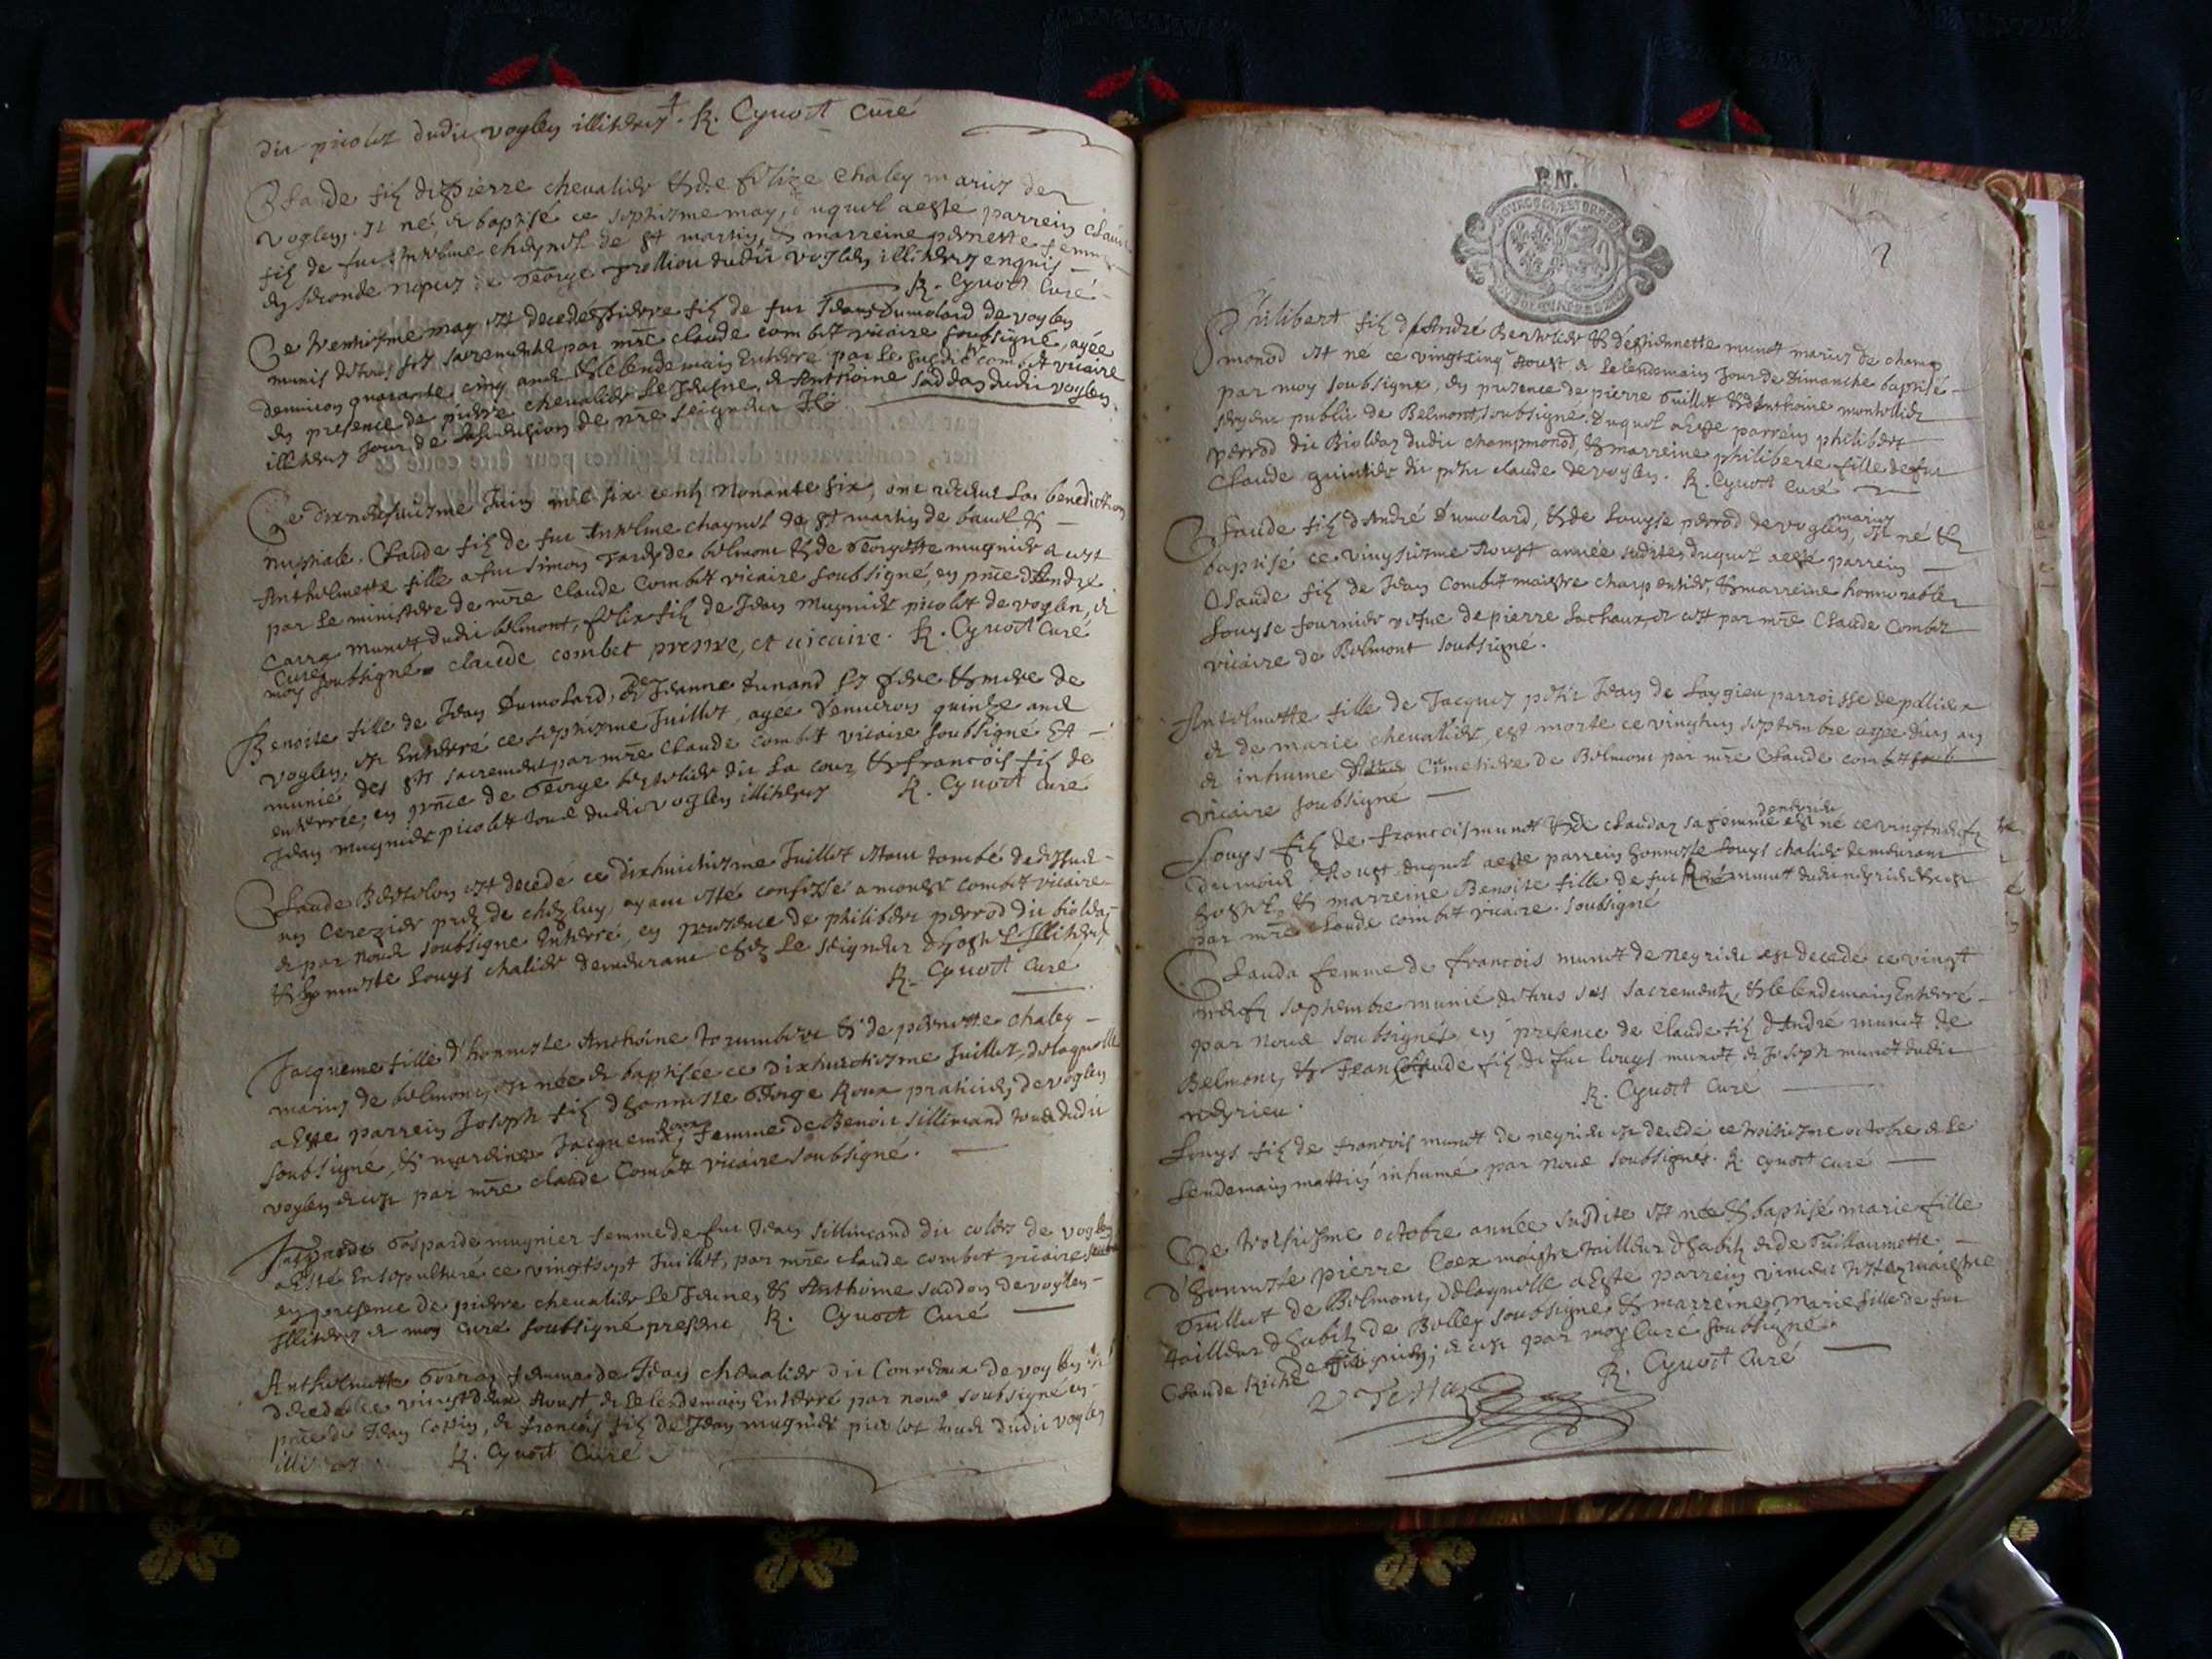 dit picolet dudit voglen illiteres. R. Cyvoct Curé
Claude filz de Pierre chevalier & de felize Chaley mariez de
voglen, est né, & baptisé ce septiesme may, duquel a esté parrein Claude
filz de fut Antelme chaynel de St martin, & marreine pernette femme
en seconde nopces de George dudit voglen illiteres enquis
R. Cyvoct Curé
Ce trentiesme may est decedé Pierre filz de fut Jean Dumolard de voglen
munis de tous sts sacrements par mre claude combet vicaire soubsigné, agée
denuiron quarante cinq ans & le lendemain Enterré par le susdit combet vicaire
en presence de pierre chevalier Le Jeusne, & Anthoine saddon dudit voglen
illiteres Jour de de nre seigneur
Ce Juin mil six cents Nonante six, ont receut La benediction
nuptiale. Claude filz de fut Antelme chaynel de St martin de bavel &
Anthelmette fille a fut simon Jardy de belmont & de Georgette mugnier a cest
par Le ministere de mre Claude Combet vicaire soubsigné, en pnce d'André
Carra munet dudit belmont, felix filz de Jean mugnier picolet de voglen, &
curé
moy soubsigné claude combet prestre, et vicaire. R. Cyvoct Curé
Benoite fille de Jean Dumolard, & de Jeanne Dunand ses pere & mere de
voglen, est Enterré ce septiesme Juillet, agée denuiron quinze ans
munie des sts sacrements par mre Claude combet vicaire soubsigné Et
enterrée, en pnce de George dit La cour, & francois filz de
Jean mugnier picolet tous dudit voglen illiteres R. Cyvoct Curé
Claude Bertelon est decedé ce dixhuictiesme Juillet estant tombé dedessus
un Cerezier prez de chez luy, ayant esté confessé a monsr combet vicaire
& par nous soubsigné Enterré, en presence de philibert perrod dit biolay
& honneste Louys chalier demeurant chez Le seigneur d'hostel Illiteres
R. Cyvoct Curé
Jacqueme fille d'honneste Anthoine torumbere & de pernette chaley
mariez de belmont, est née & baptisée ce Dixhuictiesme Juillet, de laquelle
a Este parrein Joseph filz d'honneste George Roux praticien de voglen
Roux
soubsigné, & marreine Jacquemaz, femme de Benoit sillimand tous dudit
voglen & cest par mre claude Combet vicaire soubsigné.
Gasparde mugnier femme de fut Jean sillimand dit colet de voglen
a Esté Ensepulturé ce vingtsept Juillet, par mre claude combet vicaire
en presence de pierre chevalier Le Jeune, & Anthoine saddon de voglen
Illiteres & moy curé soubsigné present R. Cyvoct Curé
Anthelmette femme de Jean chevalier dit de voglen est
decedée ce vingt deux Aoust & le lendemain Enterré par nous soubsigné en
pnce de Jean, & francois filz de Jean mugnier picolet tous dudit voglen
R. Cyvoct Curé
P.N.
2
Philibert filz d'André & d'estiennette munet mariez de champ
monod est né ce vingtcinq Aoust, & le lendemain Jour de Dimanche baptisé
par moy soubsigné, en presence de pierre Tuillet & d'Anthoine montillier
sergent public de Belmont, soubsigné. Duquel a Este parrein philibert
perrod dit Biolay dudit champmonod, & marreine philiberte fille de fut
Claude dit petit claude de voglen. R. Cyvoct Curé
mariez
Claude filz d'André Dumolard, & de Louyse perrod de voglen, est né &
baptisé ce Aoust année sudite, duquel a esté parrein
Claude filz de Jean Combet maistre charpentier, & marreine honnorable
Louyse fournier vefue de pierre Lachaux, & cest par mre Claude Combet
vicaire de Belmont soubsigné.
Antelmette fille de Jacques petit Jean de parroisse de
& de marie chevalier, est morte ce vingtun septembre agée d'un an
& inhume Cimetiere de Belmont par mre Claude combet
vicaire soubsigné
de neyrieu
Louys filz de francois munet & de claudaz sa femme est né ce vingtneufz
du mois d'Aoust duquel a este parrein honneste Louys chalier demeurant
hostel, & marreine Benoite fille de fut munet dudit neyrieu & cest
par mre claude combet vicaire. soubsigné
Clauda femme de francois munet de neyrieu est decede ce vingt
neufz septembre munie de tous ses sacrements, & le lendemain Enterré
par nous soubsignés en presence de claude filz d'André munet de
Belmont, & Jean Claude filz de fut louys munet & Joseph munet dudit
neyrieu. R. Cyvoct Curé
Louys filz de francois munet de neyrieu est decedé ce troisiesme octobre & Le
Lendemain mattin inhumé par nous soubsignes. R. Cyvoct Curé
Ce troisiesme octobre année susdite est née & baptisé marie fille
d'honneste pierre Coex maistre tailleur d'habits & de Guillaumette
Tuillet de Belmont, de laquelle a Este parrein vincent maistre
tailleur d'habits de Belley soubsigné & marreine, Marie fille de fut
Claude Riche, & cest par moy Curé soubsigné.
R. Cyvoct Curé